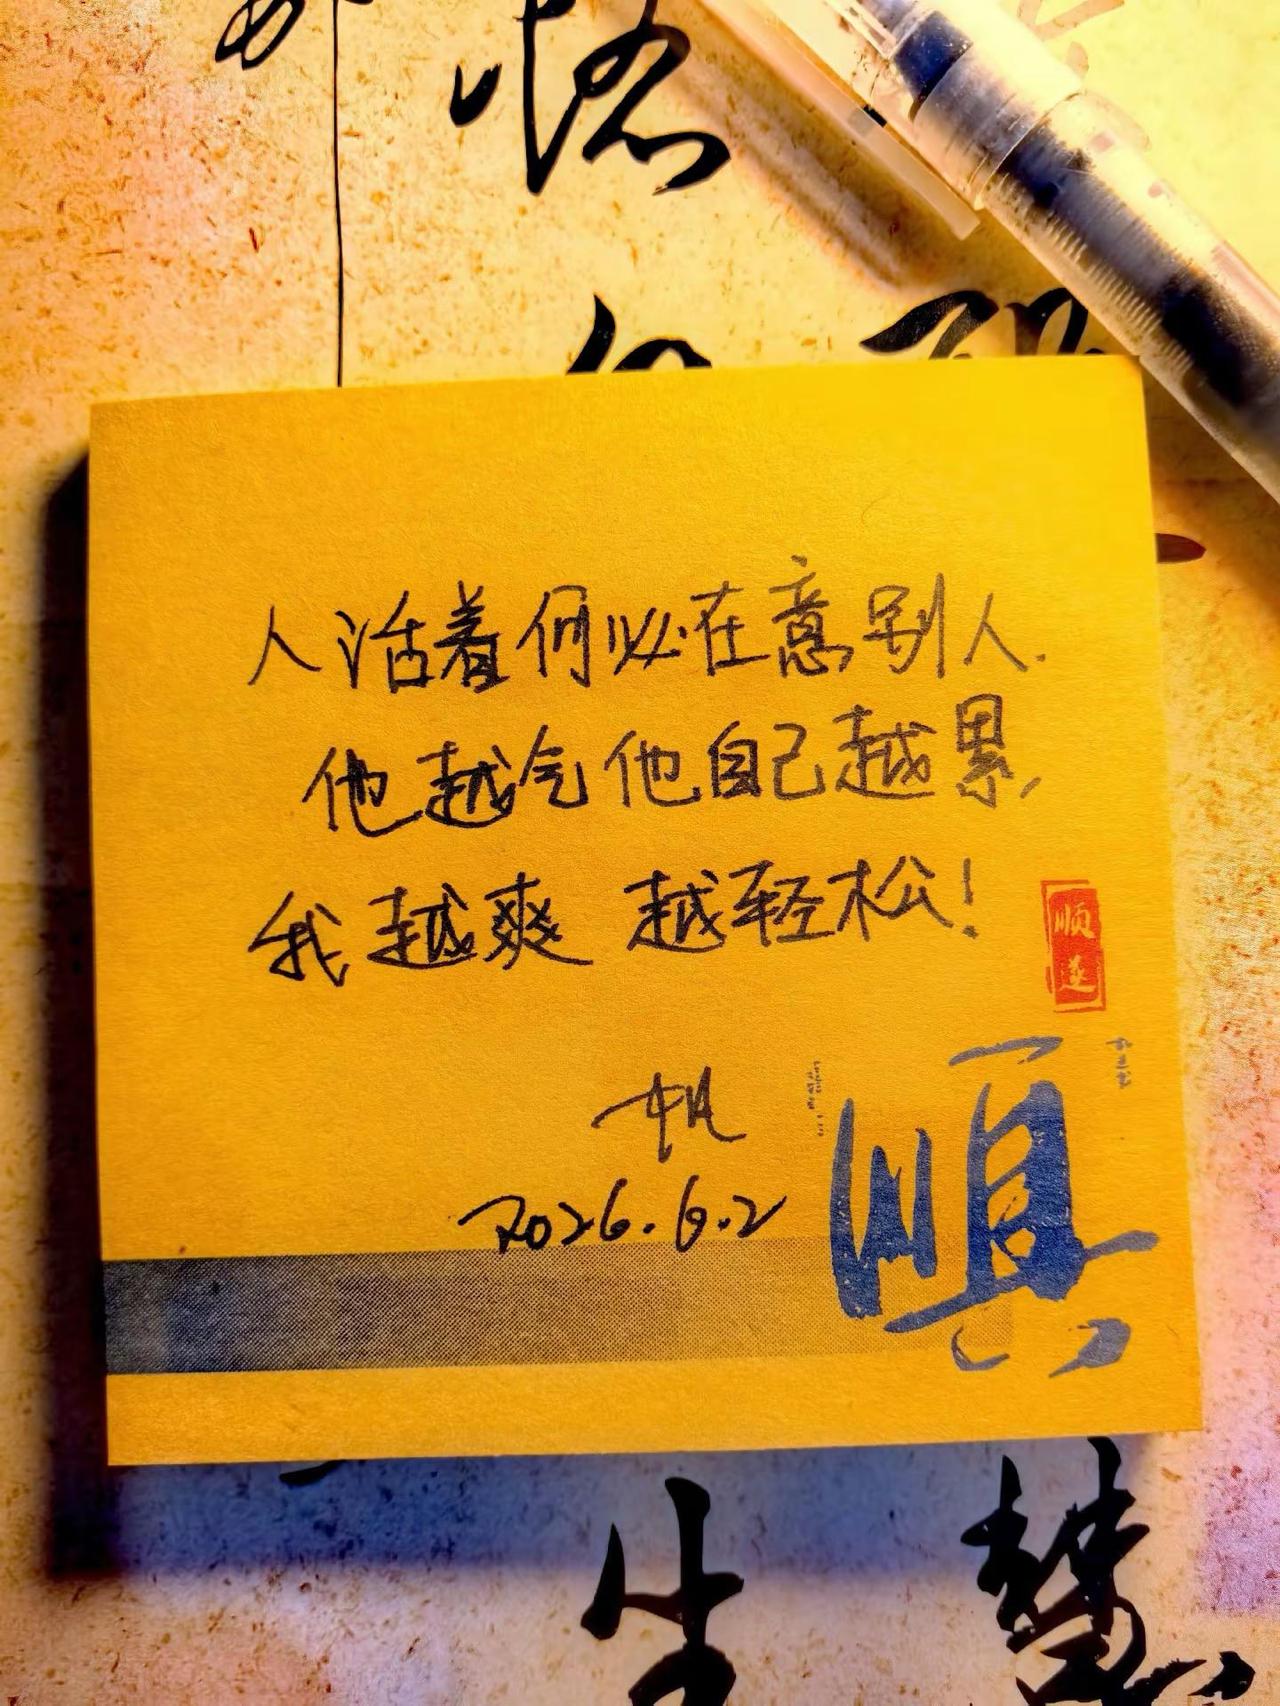 人活着何必在意别人.
他越气他自己越累,
我越爽 越轻松!
帆
2026.6.2
顺遂
顺
生
慧